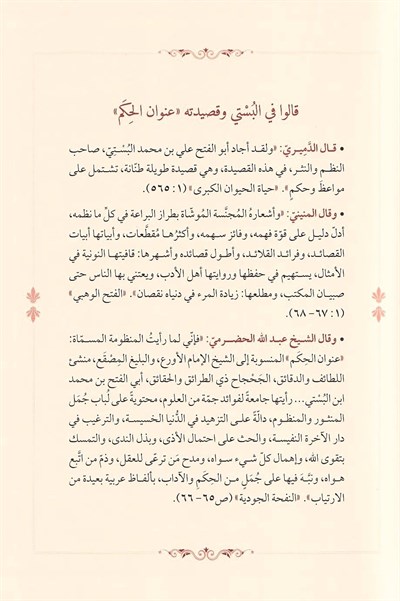 قالوا في البُسْتي وقصيدته «عنوان الحِكَم»
• قال الدَّمِيريّ: «ولقد أجاد أبو الفتح علي بن محمد البُسْتِيّ، صاحب
النظم والنثر، في هذه القصيدة، وهي قصيدة طويلة طنّانة، تشتمل على
مواعظَ وحكمٍ». «حياة الحيوان الكبرى» (١: ٥٦٥).
• وقال المنيني: «وأشعارهُ المُجنَّسة المُوشّاة بطراز البراعة في كلّ ما نظمه،
أدلّ دليل على قوّة فهمه، وفائز سهمه، وأكثرُها مُقطَّعات، وأبياتها أبيات
القصائد، وفرائد القلائد، وأطول قصائده وأشهرها: قافيتها النونية في
الأمثال، يستهيم في حفظها وروايتها أهل الأدب، ويعتني بها الناس حتى
صبيان المكتب، ومطلعها: زيادة المرء في دنياه نقصان». «الفتح الوهبي»
(١: ٦٧-٦٨).
• وقال الشيخ عبد الله الحضرميّ: «فإنّي لما رأيتُ المنظومة المسمّاة:
«عنوان الحِكَم» المنسوبة إلى الشيخ الإمام الأورع، والبليغ المِصْقَع، منشئ
اللطائف والدقائق، الجَحْجاح ذي الطرائق والحقائق، أبي الفتح بن محمد
ابن البُسْتي... رأيتها جامعةً لفوائد جمّة من العلوم، محتويةً على لُباب جُمَل
المنثور والمنظوم، دالّةً على التزهيد في الدُّنيا الخسيسة، والترغيب في
دار الآخرة النفيسة، والحث على احتمال الأذى، وبذل الندى، والتمسك
بتقوى الله، وإهمال كلّ شيء سواه، ومدح مَن ترعّى للعقل، وذمّ من اتَّبع
هواه، ونبَّه فيها على جُمَلٍ من الحِكَمِ والآداب، بألفاظ عربية بعيدة من
الارتياب». «النفحة الجودية» (ص٦٥-٦٦).